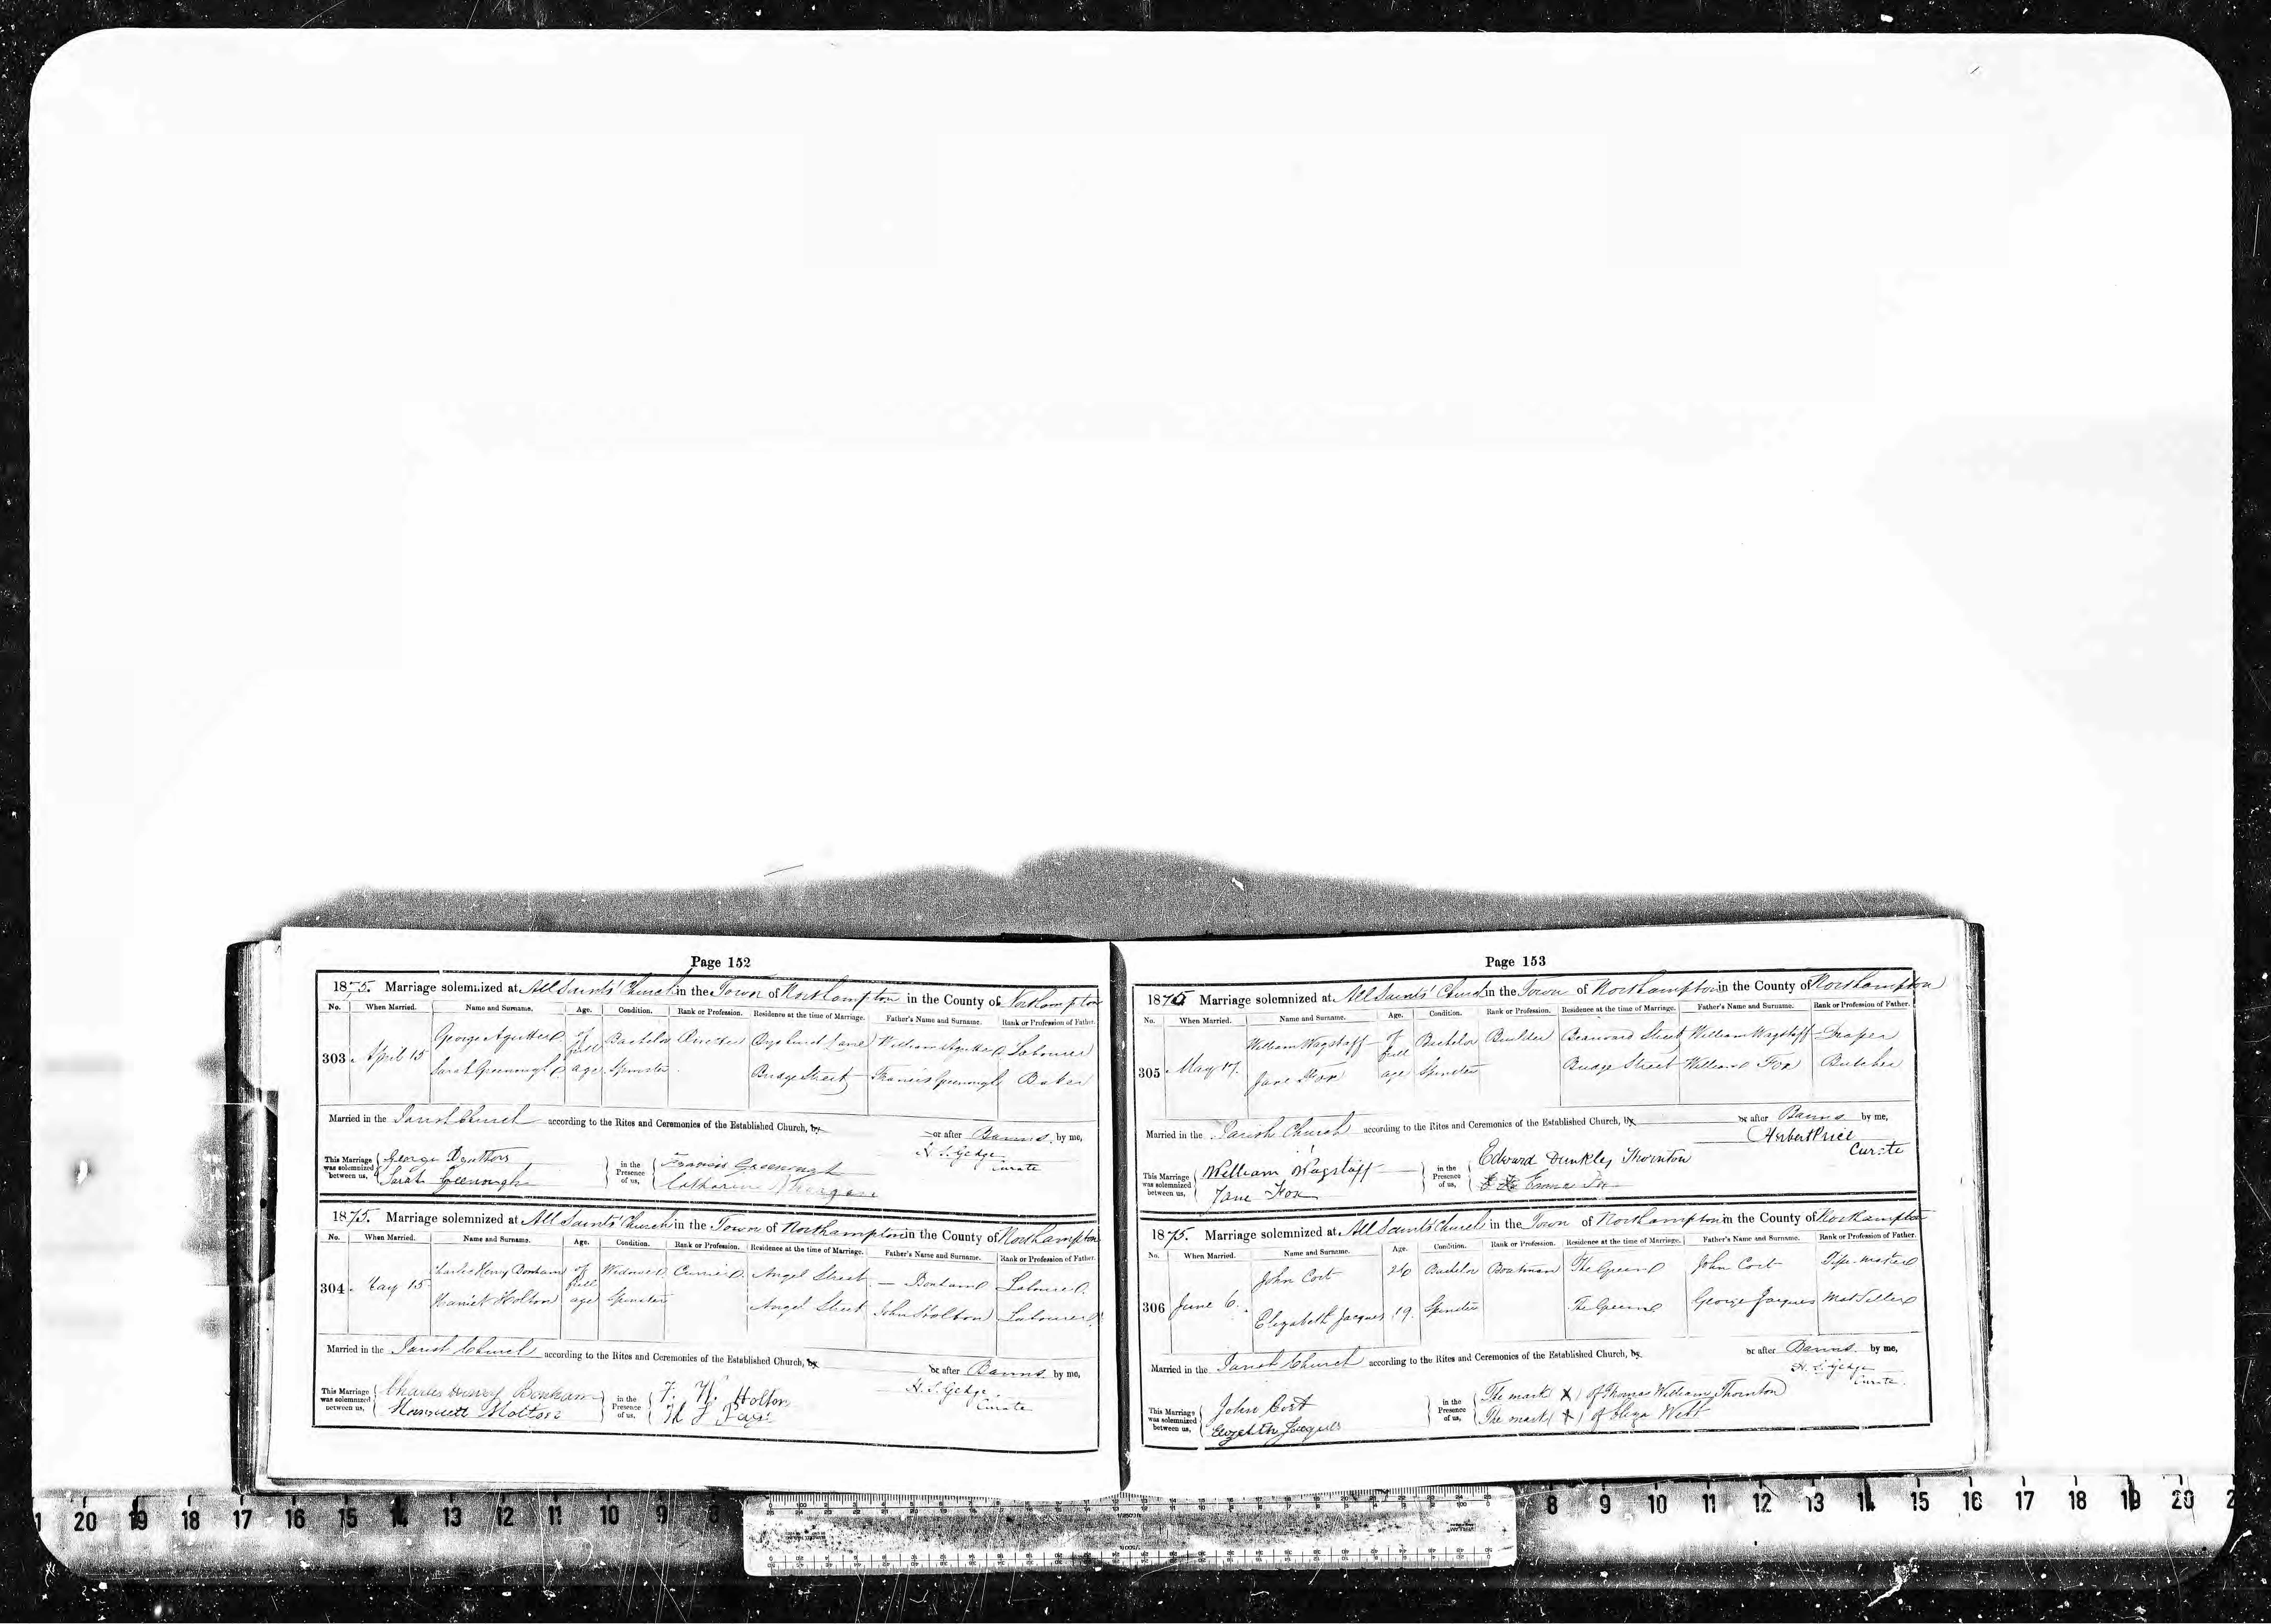 Page 152
1875. Marriage solemnized at All Saints' Church in the Town of Northampton in the County of Northampton
No. When Married. Name and Surname. Age. Condition. Rank or Profession. Residence at the time of Marriage. Father's Name and Surname. Rank or Profession of Father.
303. April 15 George Agutter of full age Bachelor Lane William Agutter Labourer
Sarah Greenough Spinster Bridge Street Francis Greenough Baker
Married in the Parish Church according to the Rites and Ceremonies of the Established Church, by or after Banns by me,
H. S. Gedge
Curate
This Marriage was solemnized between us, George Agutter Sarah Greenough in the Presence of us, Francis Greenough Catharine
1875. Marriage solemnized at All Saints' Church in the Town of Northampton in the County of Northampton
No. When Married. Name and Surname. Age. Condition. Rank or Profession. Residence at the time of Marriage. Father's Name and Surname. Rank or Profession of Father.
304. May 15 Charles Henry Bonham of full age Widower Currier Angel Street — Bonham Labourer
Harriett Holton Spinster Angel Street John Holton Labourer
Married in the Parish Church according to the Rites and Ceremonies of the Established Church, by or after Banns by me,
H. S. Gedge
Curate
This Marriage was solemnized between us, Charles Henry Bonham Harriett Holton in the Presence of us, F. W. Holton
Page 153
1875 Marriage solemnized at All Saints' Church in the Town of Northampton in the County of Northampton
No. When Married. Name and Surname. Age. Condition. Rank or Profession. Residence at the time of Marriage. Father's Name and Surname. Rank or Profession of Father.
305 May 17. William Wagstaff of full age Bachelor Builder Street William Wagstaff Draper
Jane Fox Spinster Bridge Street William Fox Butcher
Married in the Parish Church according to the Rites and Ceremonies of the Established Church, by or after Banns by me,
Herbert Price
Curate
This Marriage was solemnized between us, William Wagstaff Jane Fox in the Presence of us, Edward Dunkley Thornton Emma Fox
1875. Marriage solemnized at All Saints' Church in the Town of Northampton in the County of Northampton
No. When Married. Name and Surname. Age. Condition. Rank or Profession. Residence at the time of Marriage. Father's Name and Surname. Rank or Profession of Father.
306 June 6. John Cort 26 Bachelor Boatman The Green John Cort Pipe-maker
Elizabeth Jacques 19. Spinster The Green George Jacques Mat Seller
Married in the Parish Church according to the Rites and Ceremonies of the Established Church, by or after Banns by me,
H. S. Gedge
Curate.
This Marriage was solemnized between us, John Cort Jacques in the Presence of us, The mark (X) of Thomas William Thornton The mark (X) of Eliza Webb
20 19 18 17 16 15 14 13 12 11 10 9 8 8 9 10 11 12 13 14 15 16 17 18 19 20